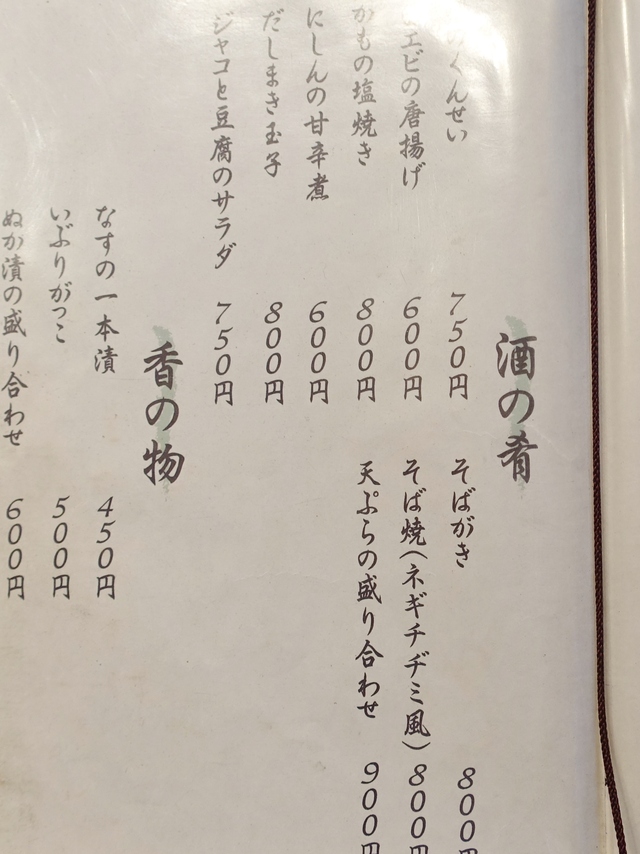 酒の肴
くんせい 750円
エビの唐揚げ 600円
かもの塩焼き 800円
にしんの甘辛煮 600円
だしまき玉子 800円
ジャコと豆腐のサラダ 750円
そばがき 800円
そば焼(ネギチヂミ風) 800円
天ぷらの盛り合わせ 900円
香の物
なすの一本漬 450円
いぶりがっこ 500円
ぬか漬の盛り合わせ 600円